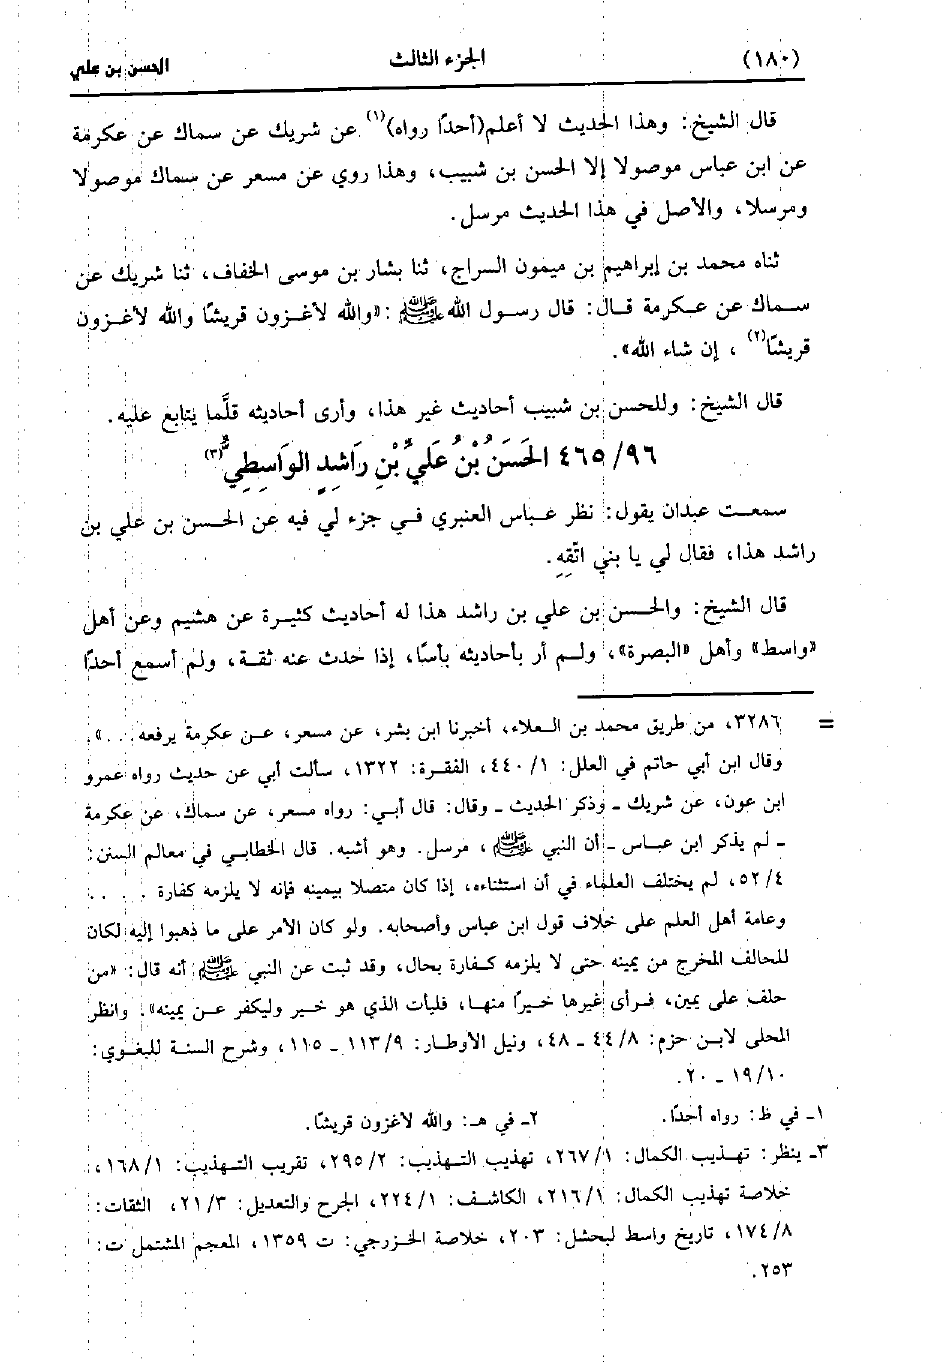 (١٨٠) الجزء الثالث الحسن بن علي
قال الشيخ: وهذا الحديث لا أعلم(أحدًا رواه)(١) عن شريك عن سماك عن عكرمة
عن ابن عباس موصولا إلا الحسن بن شبيب، وهذا روي عن مسعر عن سماك موصولا
ومرسلا، والأصل في هذا الحديث مرسل.
ثناه محمد بن إبراهيم بن ميمون السراج، ثنا بشار بن موسى الخفاف، ثنا شريك عن
سماك عن عكرمة قال: قال رسول الله ﷺ: «والله لأغزون قريشًا والله لأغزون
قريشًا(٢) ، إن شاء الله».
قال الشيخ: وللحسن بن شبيب أحاديث غير هذا، وأرى أحاديثه قلَّما يتابع عليه.
٤٦٥/٩٦ الحَسَنُ بْنُ عَلِيِّ بْنِ رَاشِدٍ الوَاسِطِيُّ(٣)
سمعت عبدان يقول: نظر عباس العنبري في جزء لي فيه عن الحسن بن علي بن
راشد هذا، فقال لي يا بني اتَّقِهِ.
قال الشيخ: والحسن بن علي بن راشد هذا له أحاديث كثيرة عن هشيم وعن أهل
«واسط» وأهل «البصرة»، ولم أر بأحاديثه بأسًا، إذا حدث عنه ثقة، ولم أسمع أحدًا
= ٣٢٨٦، من طريق محمد بن العلاء، أخبرنا ابن بشر، عن مسعر، عن عكرمة يرفعه. . .».
وقال ابن أبي حاتم في العلل: ٤٤٠/١، الفقرة: ١٣٢٢، سألت أبي عن حديث رواه عمرو
ابن عون، عن شريك ـ وذكر الحديث ـ وقال: قال أبي: رواه مسعر، عن سماك، عن عكرمة
ـ لم يذكر ابن عباس ـ أن النبي ﷺ ، مرسل. وهو أشبه. قال الخطابي في معالم السنن:
٥٢/٤، لم يختلف العلماء في أن استثناءه، إذا كان متصلا بيمينه فإنه لا يلزمه كفارة . . . .
وعامة أهل العلم على خلاف قول ابن عباس وأصحابه. ولو كان الأمر على ما ذهبوا إليه لكان
للحالف المخرج من يمينه حتى لا يلزمه كفارة بحال، وقد ثبت عن النبي ﷺ أنه قال: «من
حلف على يمين، فرأى غيرها خيرًا منها، فليأت الذي هو خير وليكفر عن يمينه». وانظر
المحلى لابن حزم: ٤٤/٨ ـ ٤٨، ونيل الأوطار: ١١٣/٩ ـ ١١٥، وشرح السنة للبغوي:
١٩/١٠ ـ ٢٠.
١ـ في ظ: رواه أحدًا. ٢ـ في هـ: والله لأغزون قريشًا.
٣ـ ينظر: تهذيب الكمال: ٢٦٧/١، تهذيب التهذيب: ٢٩٥/٢، تقريب التهذيب: ١٦٨/١،
خلاصة تهذيب الكمال: ٢١٦/١، الكاشف: ٢٢٤/١، الجرح والتعديل: ٢١/٣، الثقات:
١٧٤/٨، تاريخ واسط لبحشل: ٢٠٣، خلاصة الخزرجي: ت ١٣٥٩، المعجم المشتمل ت:
٢٥٣.